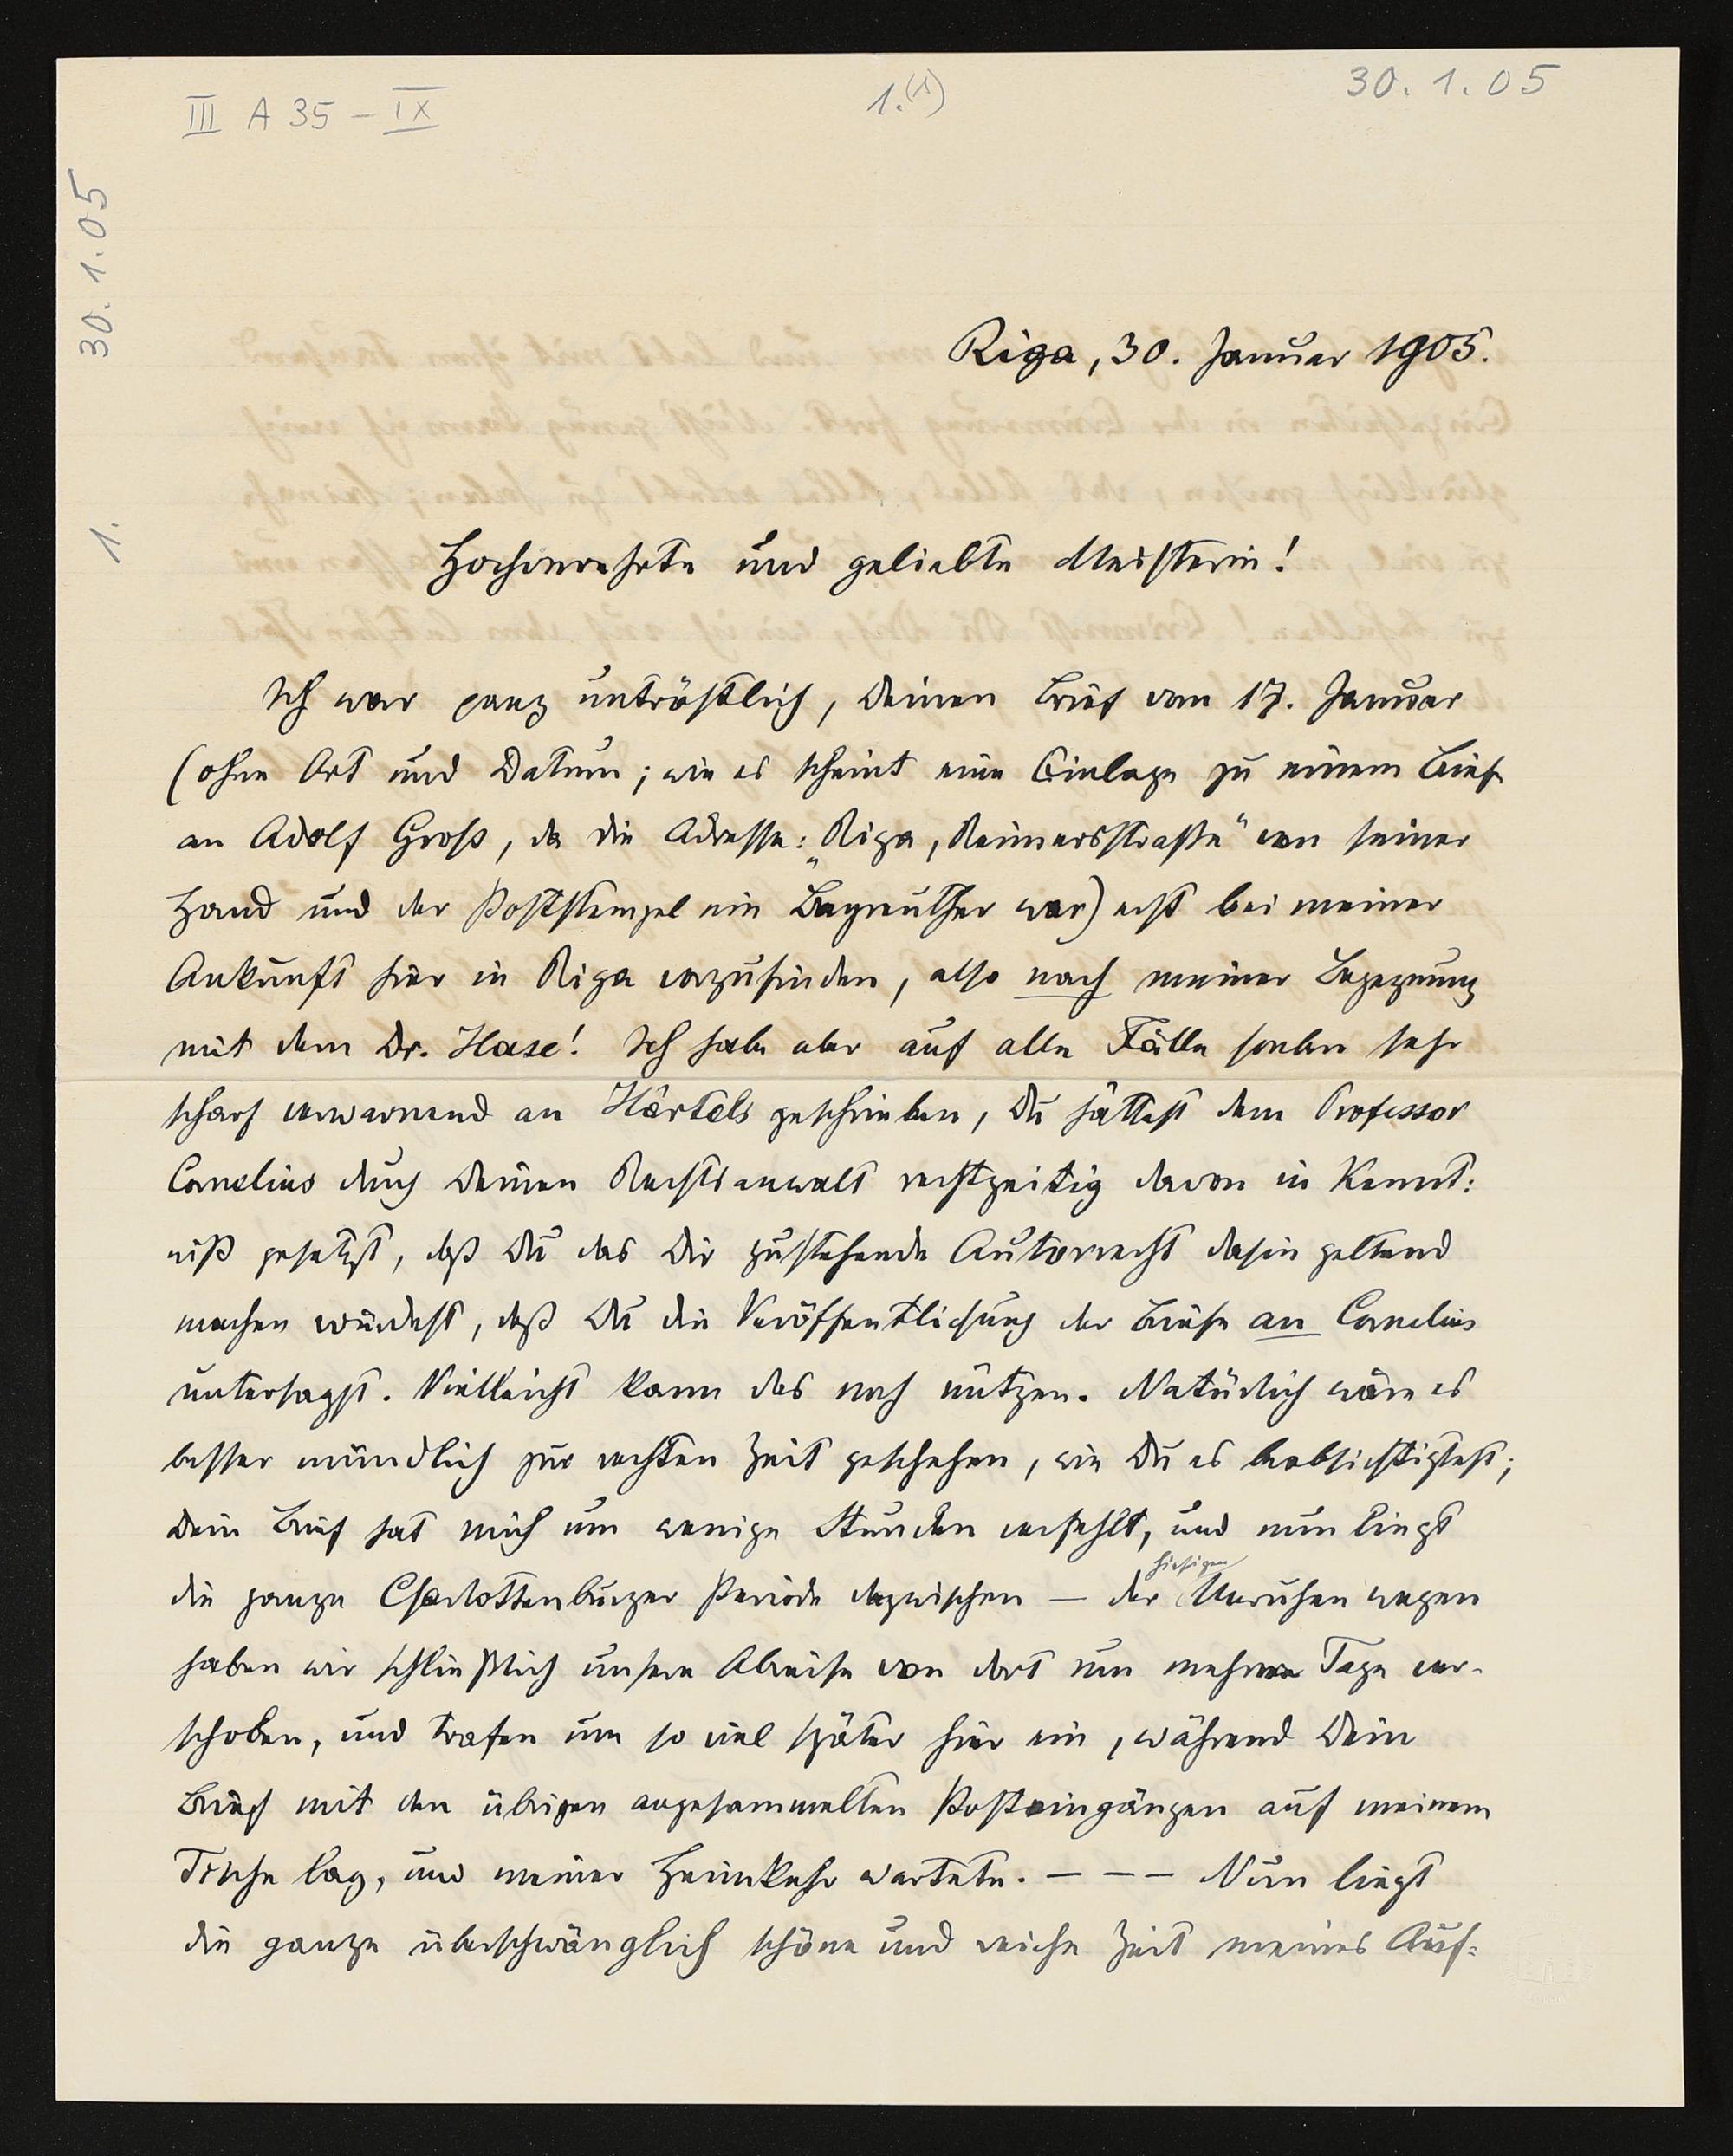 III A 35 – IX
1.(1)
30. 1. 05
30. 1. 05
1.
Riga, 30. Januar 1905.
Hochverehrte und geliebte Meisterin!
Ich war ganz untröstlich, Deinen Brief vom 17. Januar
(ohne Ort und Datum; wie es scheint eine Einlage zu einem Brief
an Adolf Groß, da die Adresse: „Riga, Reimersstraße“ von seiner
Hand und der Poststempel ein Bayreuther war) erst bei meiner
Ankunft hier in Riga vorzufinden, also nach meiner Begegnung
mit dem Dr. Hase! Ich habe aber auf alle Fälle soeben sehr
scharf verwarnend an Härtels geschrieben, Du hättest dem Professor
Cornelius durch Deinen Rechtsanwalt rechtzeitig davon in Kennt:
niß gesetzt, daß Du das Dir zustehende Autorrecht dahin geltend
machen würdest, daß Du die Veröffentlichung der Briefe an Cornelius
untersagst. Vielleicht kann das noch nützen. Natürlich wäre es
besser mündlich zur rechten Zeit geschehen, wie Du es beabsichtigtest;
Dein Brief hat mich um wenige Stunden verfehlt, und nun liegt
die ganze Charlottenburger Periode dazwischen — der hiesigen Unruhen wegen
haben wir schließlich unsere Abreise von dort um mehrere Tage ver-
schoben, und trafen um so viel später hier ein, während Dein
Brief mit den übrigen angesammelten Posteingängen auf meinem
Tische lag, und meiner Heimkehr wartete. — — — Nun liegt
die ganze überschwänglich schöne und reiche Zeit meines Auf: